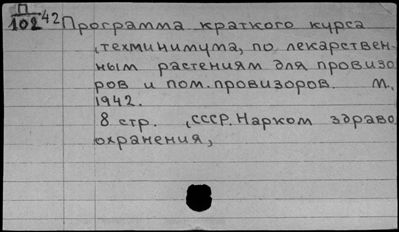 П
102 42 Программа краткого курса
,техминимума, по лекарствен-
ным растениям для провизо
ров и пом. провизоров. М.,
1942.
8 стр. ,СССР. Нарком здраво
охранения,